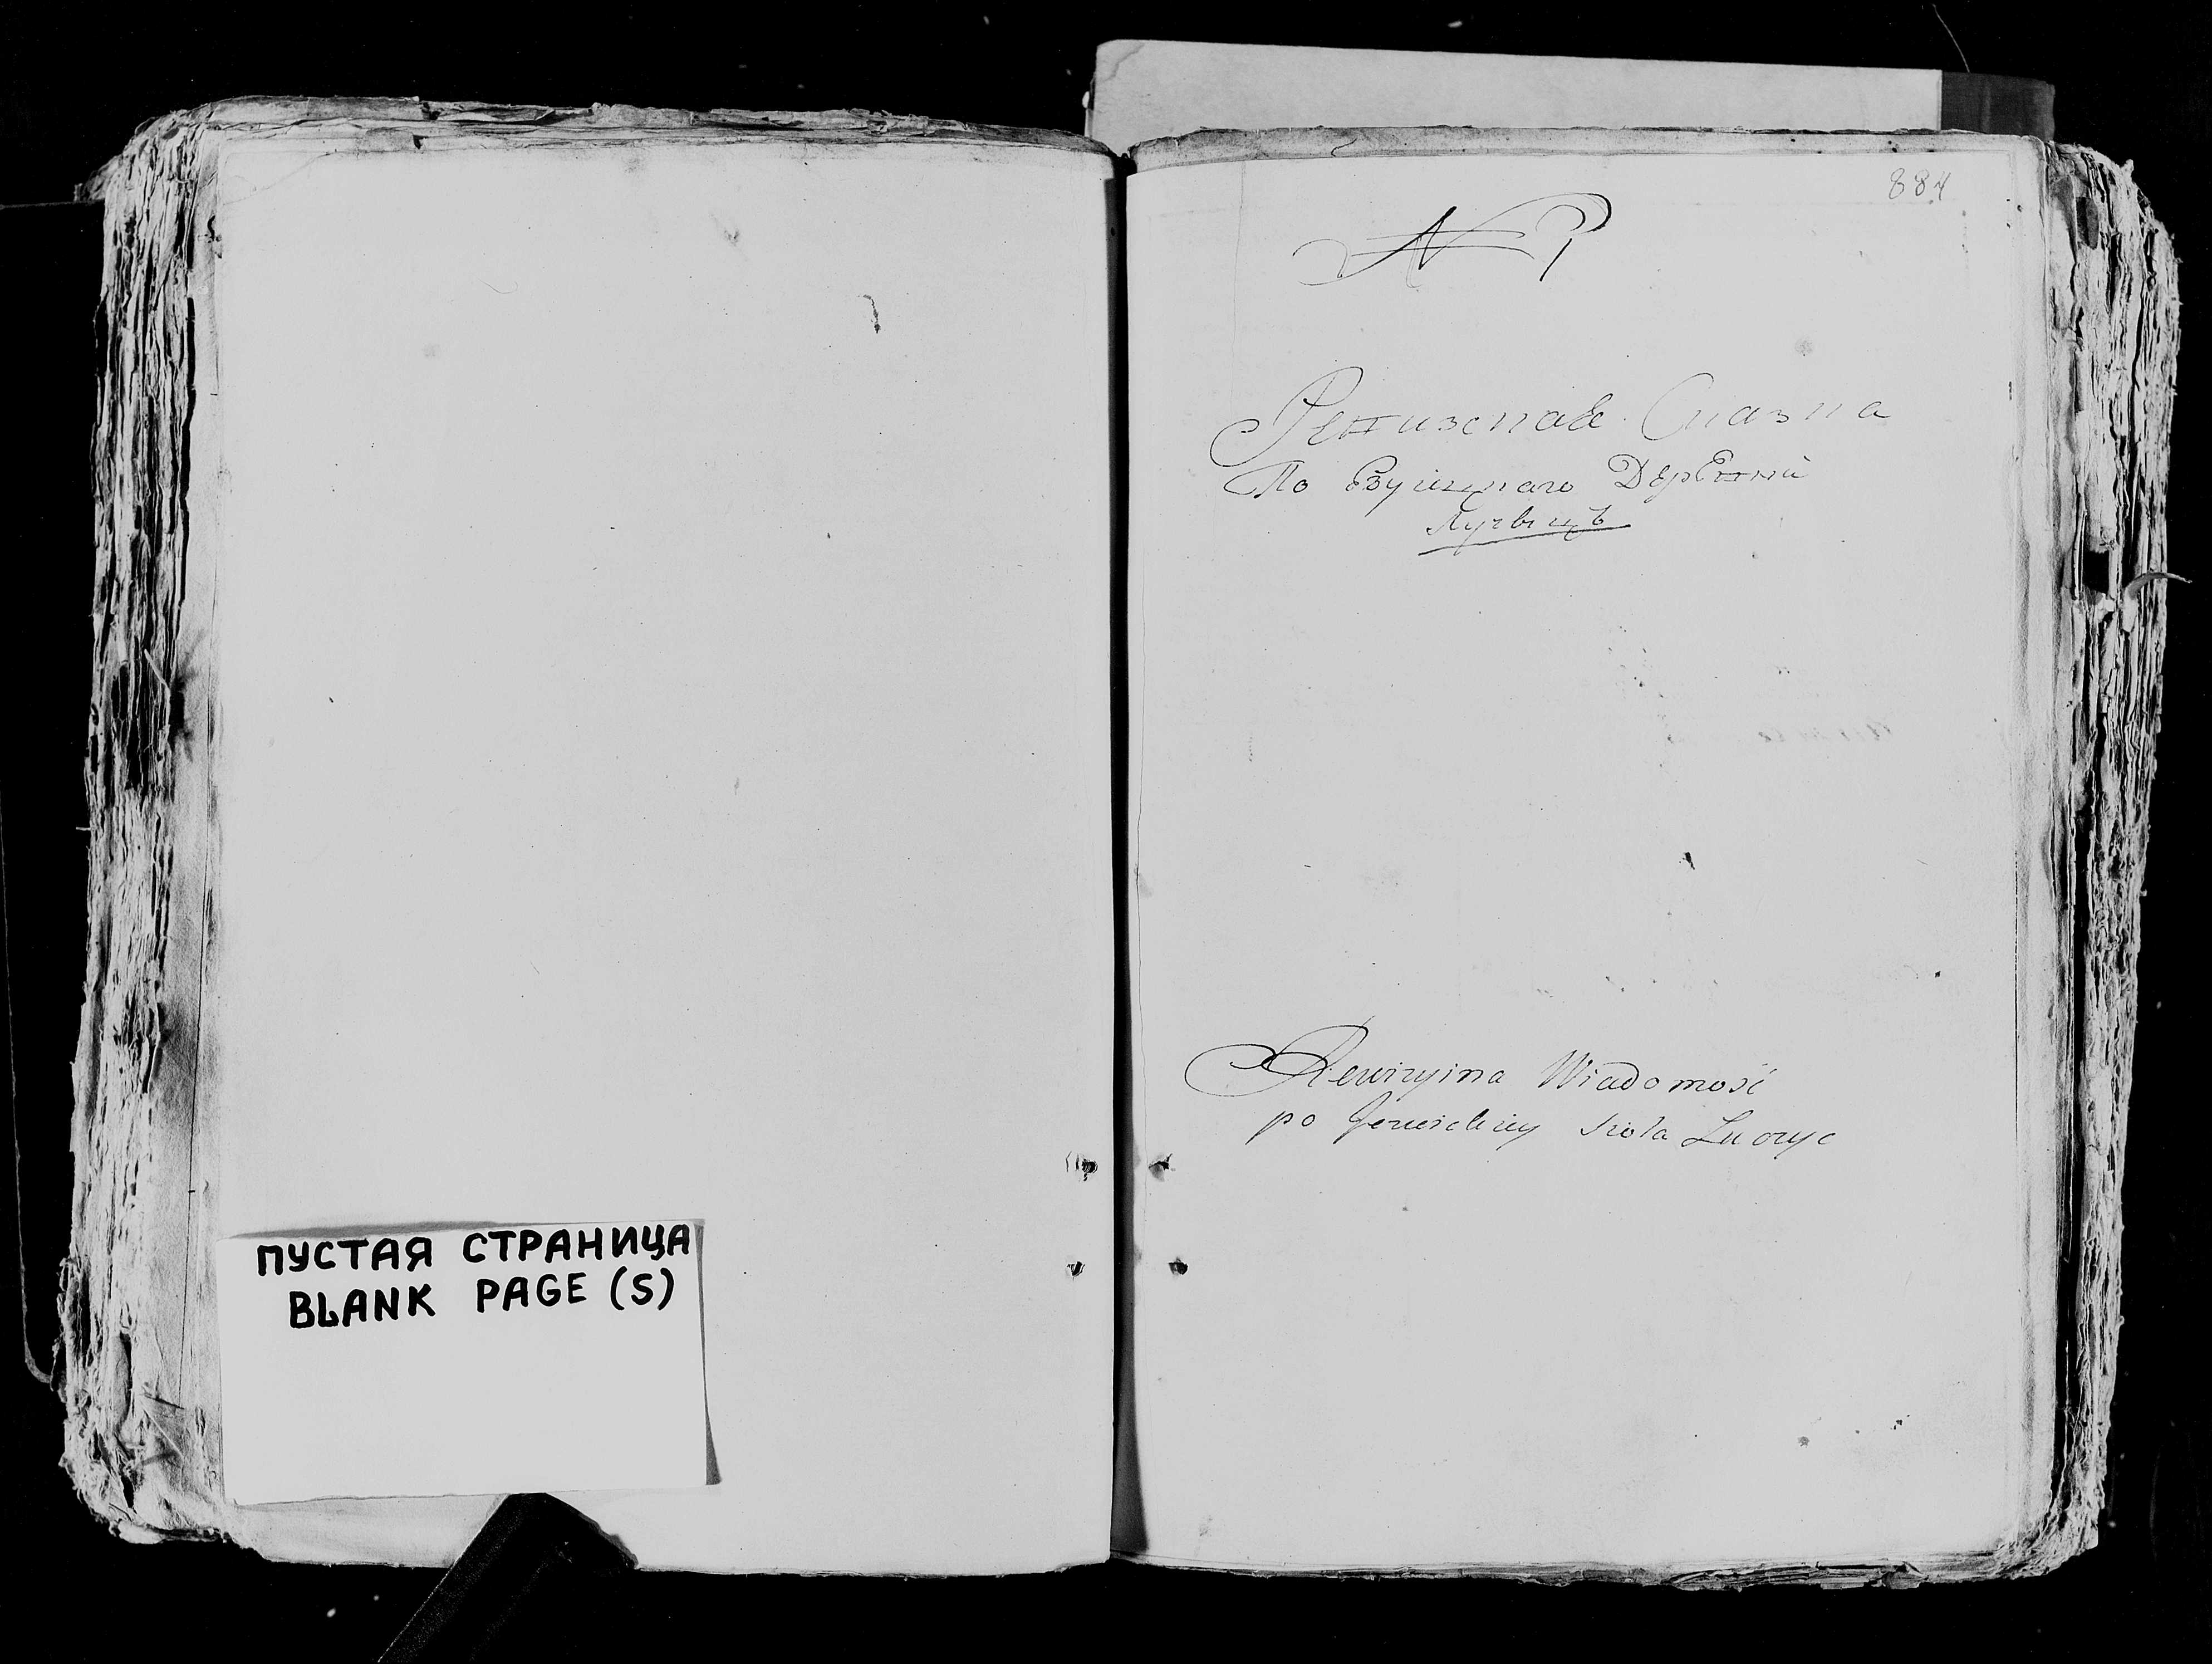 ПУСТАЯ СТРАНИЦА
BLANK PAGE (S)
884
Ревизская Сказка
По Езуицкаго Деревни
Лучицъ
Rewizyina Wiadomość
po Jezuickiey sioła Łuczyc